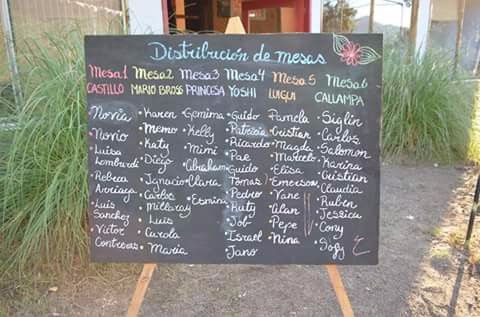 Distribución de mesas
Mesa 1
CASTILLO
Novia
Novio
Luisa
Lombardi
Rebeca
Arriaza
Luis
Sanchez
Victor
Contreras
Mesa 2
MARIO BROSS
Karen
Memo
Katy
Diego
Ignacio
Carlos
Millaray
Luis
Carola
María
Mesa 3
PRINCESA
Gemima
Kelly
Mimi
Abraham
Clara
Esmira
Mesa 4
YOSHI
Guido
Patricia
Ricardo
Pae
Guido
Tomas
Pedro
Ruty
Job
Israel
Jano
Mesa 5
LUIGUI
Pamela
Cristian
Magda
Marcelo
Elisa
Emerson
Vane
Alan
Pepe
Nina
Mesa 6
CALLAMPA
Siglin
Carlos
Salomon
Karina
Cristian
Claudia
Ruben
Jessica
Cony
Sofy